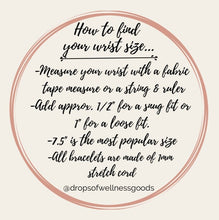 How to find
your wrist size...
-Measure your wrist with a fabric
tape measure or a string & ruler
-Add approx. 1/2" for a snug fit or
1" for a loose fit.
-7.5" is the most popular size
-All bracelets are made of 1mm
stretch cord
@dropsofwellnessgoods